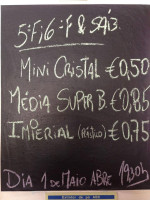 5ª F, 6ª F & SÁB.
MINI CRISTAL €0,50
MÉDIA SUPER B. €0,85
IMPERIAL €0,75
DIA 1 DE MAIO ABRE 19:30h